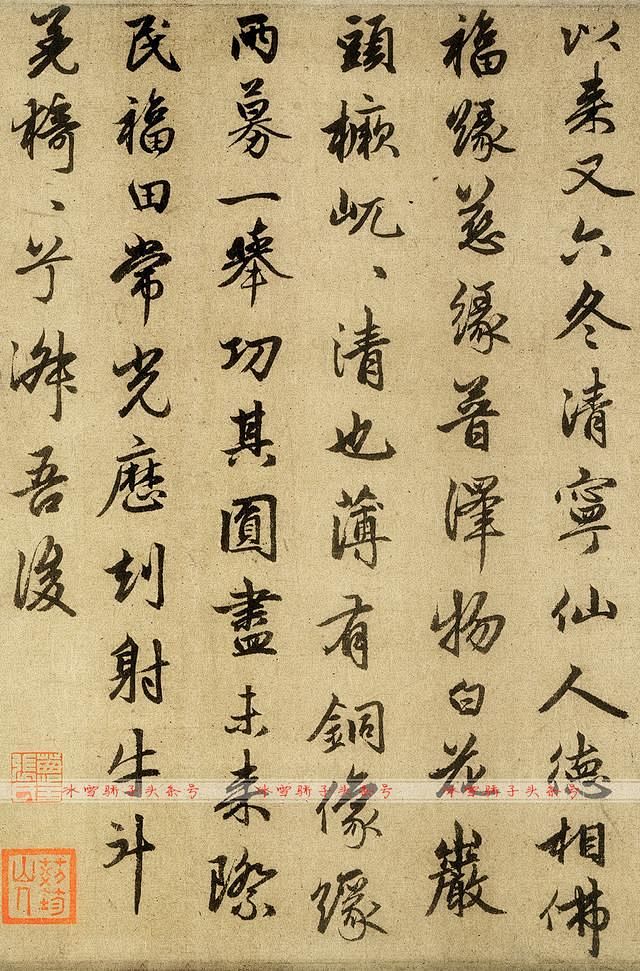 以来又六冬清寧仙人德相佛
福緣慈緣普澤物白花巖
頭橛屼、清也薄有銅像緣
兩募一舉功其圓盡未来際
民福田常光歷劫射牛斗
羌、兮吾後
冰雪骄子头条号
冰雪骄子头条号
冰雪骄子头条号